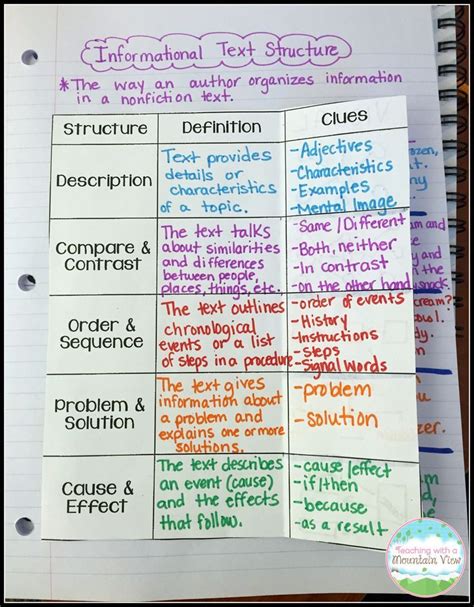 Informational Text Structure
*The way an author organizes information
in a nonfiction text.
Structure
Definition
Clues
Description
Text provides
details or
characteristics
of a topic.
-Adjectives
-Characteristics
-Examples
-Mental Image
Compare &
Contrast
The text talks
about similarities
and differences
between people,
places, things, etc.
-Same/Different
-Both, neither
-In contrast
-on the other hand
Order &
Sequence
The text outlines
chronological
events or a list
of steps in a procedure
-order of events
-History
-Instructions
-Steps
-Signal Words
Problem &
Solution
The text gives
information about
a problem and
explains one or more
solutions.
-problem
-solution
Cause &
Effect
The text describes
an event (cause)
and the effects
that follow.
-cause/effect
-if/then
-because
-as a result
Teaching with a
Mountain View